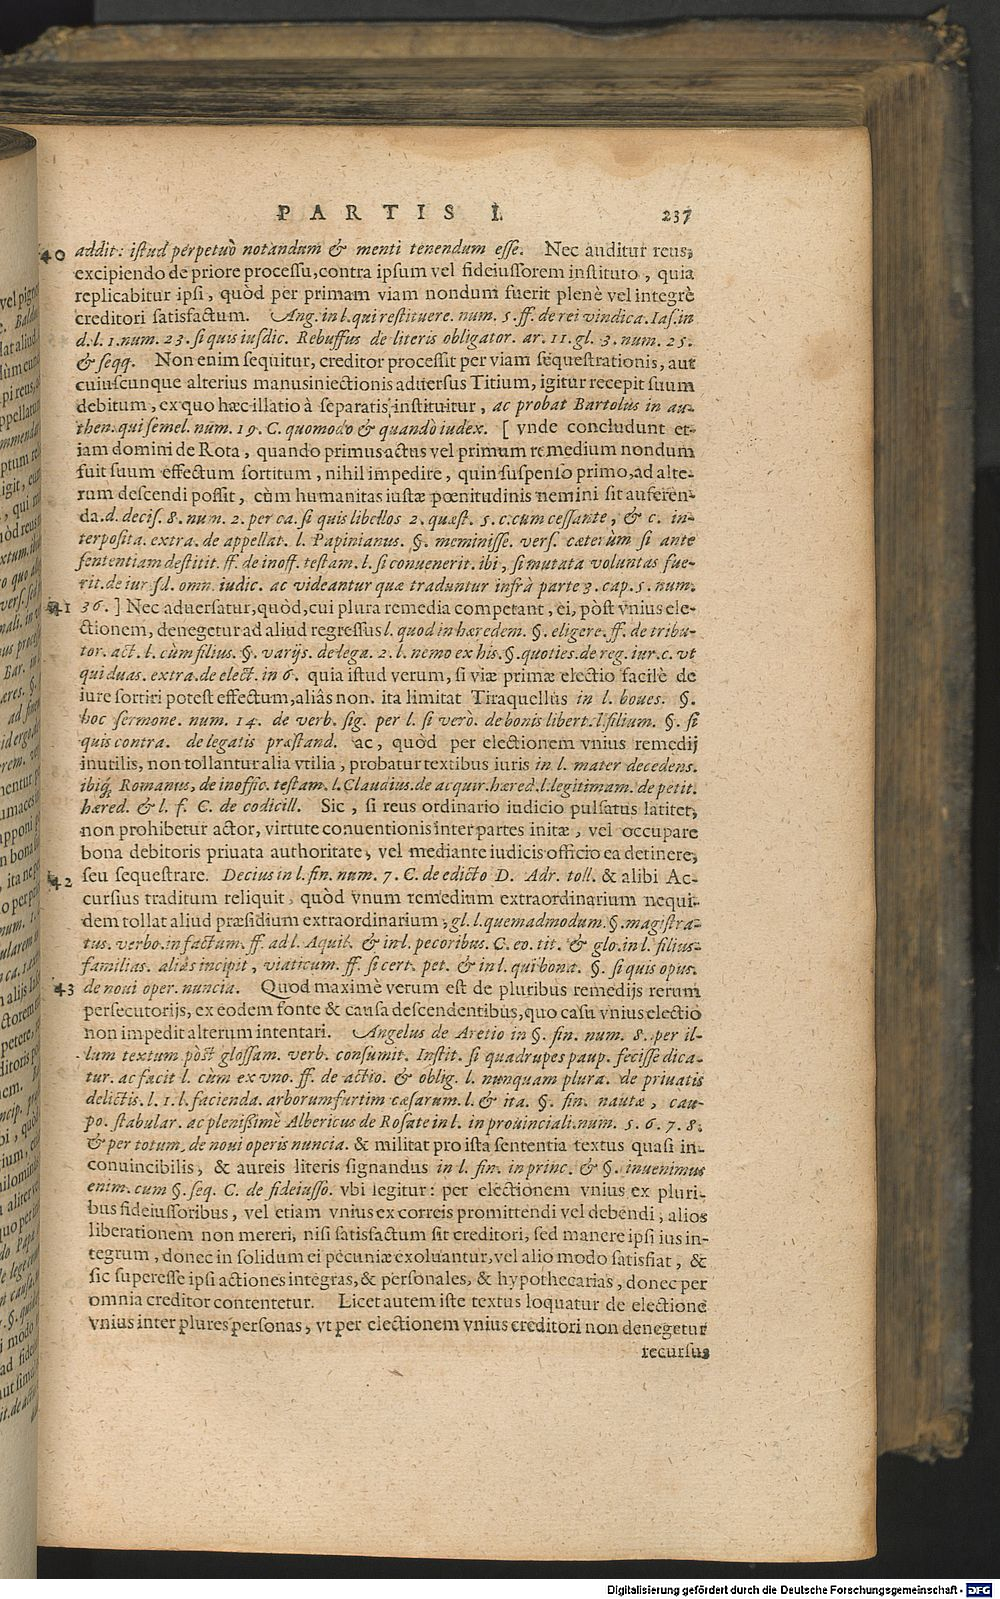 PARTIS I. 237
40 addit: istud perpetuò notandum & menti tenendum esse. Nec auditur reus,
excipiendo de priore processu, contra ipsum vel fideiussorem instituto, quia
replicabitur ipsi, quòd per primam viam nondum fuerit plenè vel integrè
creditori satisfactum. Ang. in l. qui restituere. num. 5. ff. de rei vindica. Ias. in
d. l. 1. num. 23. si quis iusdic. Rebuffus de literis obligator. ar. 11. gl. 3. num. 25.
& seqq. Non enim sequitur, creditor processit per viam sequestrationis, aut
cuiuscunque alterius manusiniectionis aduersus Titium, igitur recepit suum
debitum, ex quo hæc illatio à separatis instituitur, ac probat Bartolus in au-
then. qui semel. num. 19. C. quomodo & quando iudex. [ vnde concludunt et-
iam domini de Rota, quando primus actus vel primum remedium nondum
fuit suum effectum sortitum, nihil impedire, quin suspenso primo, ad alte-
rum descendi possit, cùm humanitas iustæ pœnitudinis nemini sit auferen-
da. d. decis. 8. num. 2. per ca. si quis libellos 2. quæst. 5. c. cum cessante, & c. in-
terposita. extra. de appellat. l. Papinianus. §. meminisse. vers. cæterùm si ante
sententiam destitit. ff. de inoff. testam. l. si conuenerit. ibi, si mutata voluntas fue-
rit. de iurisd. omn. iudic. ac videantur quæ traduntur infrà parte 3. cap. 5. num.
41 36. ] Nec aduersatur, quòd, cui plura remedia competant, ei, pòst vnius ele-
ctionem, denegetur ad aliud regressus l. quod in hæredem. §. eligere. ff. de tribu-
tor. act. l. cùm filius. §. varijs. de lega. 2. l. nemo ex his. §. quoties. de reg. iur. c. vt
qui duas. extra. de elect. in 6. quia istud verum, si viæ primæ electio facilè de
iure sortiri potest effectum, aliâs non. ita limitat Tiraquellus in l. boues. §.
hoc sermone. num. 14. de verb. sig. per l. si verò. de bonis libert. l. filium. §. si
quis contra. de legatis præstand. ac, quòd per electionem vnius remedij
inutilis, non tollantur alia vtilia, probatur textibus iuris in l. mater decedens.
ibiq́; Romanus, de inoffic. testam. l. Claudius. de acquir. hæred. l. legitimam. de petit.
hæred. & l. f. C. de codicill. Sic, si reus ordinario iudicio pulsatus latitet,
non prohibetur actor, virtute conuentionis inter partes initæ, vel occupare
bona debitoris priuata authoritate, vel mediante iudicis officio ea detinere,
42 seu sequestrare. Decius in l. fin. num. 7. C. de edicto D. Adr. toll. & alibi Ac-
cursius traditum reliquit, quòd vnum remedium extraordinarium nequi-
dem tollat aliud præsidium extraordinarium, gl. l. quemadmodum. §. magistra-
tus. verbo. in factum. ff. ad l. Aquil. & in l. pecoribus. C. eo. tit. & glo. in l. filius-
familias. aliâs incipit, viaticum. ff. si cert. pet. & in l. qui bona. §. si quis opus.
43 de noui oper. nuncia. Quod maximè verum est de pluribus remedijs rerum
persecutorijs, ex eodem fonte & causa descendentibus, quo casu vnius electio
non impedit alterum intentari. Angelus de Aretio in §. fin. num. 8. per il-
lum textum pòst glossam. verb. consumit. Instit. si quadrupes paup. fecisse dica-
tur. ac facit l. cum ex vno. ff. de actio. & oblig. l. nunquam plura. de priuatis
delictis. l. 1. l. facienda. arborum furtim cæsarum. l. & ita. §. fin. nautæ, cau-
po. stabular. ac plenißimè Albericus de Rosate in l. in prouinciali. num. 5. 6. 7. 8.
& per totum, de noui operis nuncia. & militat pro ista sententia textus quasi in-
conuincibilis, & aureis literis signandus in l. fin. in princ. & §. inuenimus
enim. cum §. seq. C. de fideiusso. vbi legitur: per electionem vnius ex pluri-
bus fideiussoribus, vel etiam vnius ex correis promittendi vel debendi, alios
liberationem non mereri, nisi satisfactum sit creditori, sed manere ipsi ius in-
tegrum, donec in solidum ei pecuniæ exoluantur, vel alio modo satisfiat, &
sic superesse ipsi actiones integras, & personales, & hypothecarias, donec per
omnia creditor contentetur. Licet autem iste textus loquatur de electione
vnius inter plures personas, vt per electionem vnius creditori non denegetur
recursus
Digitalisierung gefördert durch die Deutsche Forschungsgemeinschaft - DFG